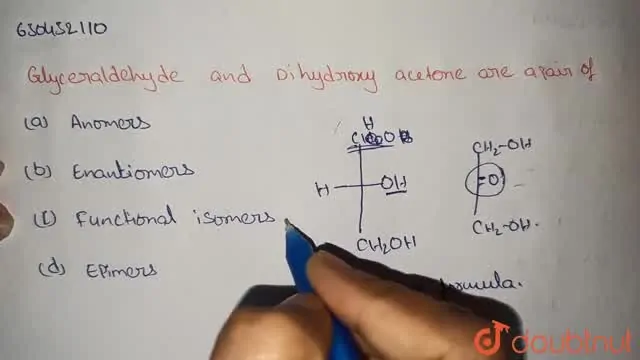 630452110
Glyceraldehyde and Dihydroxy acetone are a pair of
(a) Anomers
(b) Enantiomers
(c) Functional isomers
(d) Epimers
H
H OH
CH2OH
CH2-OH
=O
CH2-OH.
formula.
doubtnut